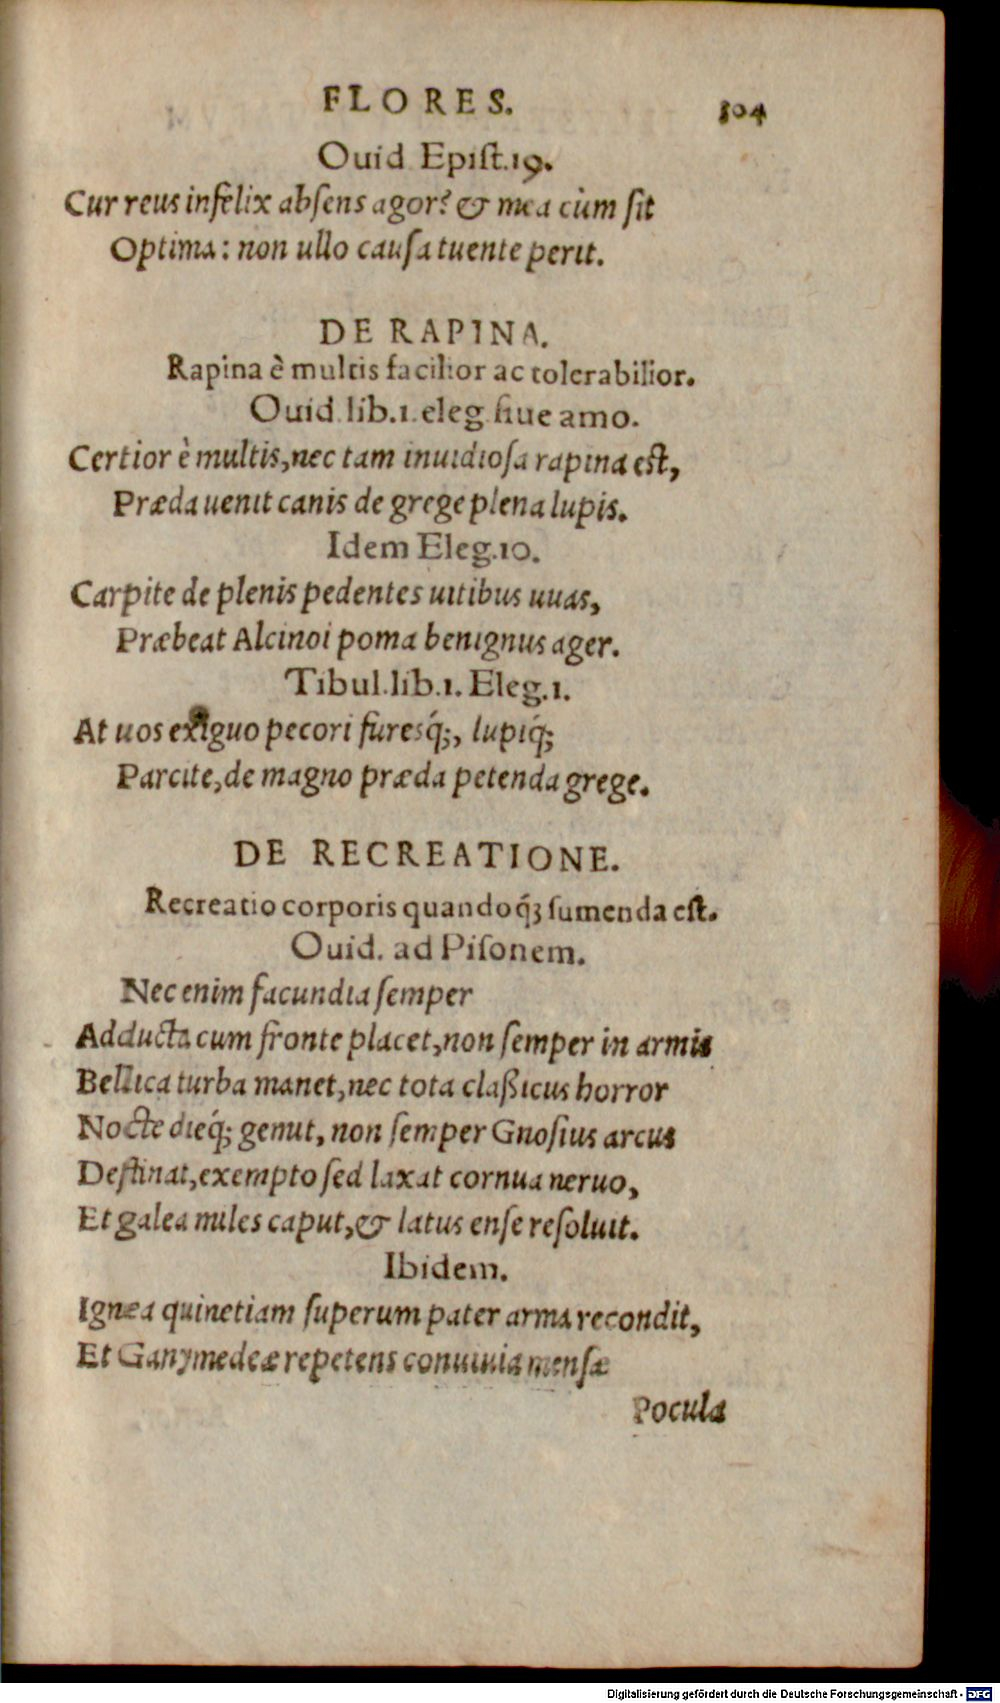 FLORES. 304
Ouid Epiſt.19.
Cur reus infelix abſens agor? & mea cùm ſit
Optima: non ullo cauſa tuente perit.
DE RAPINA.
Rapina è multis facilior ac tolerabilior.
Ouid lib.1. eleg ſiue amo.
Certior è multis, nec tam inuidioſa rapina eſt,
Præda uenit canis de grege plena lupis.
Idem Eleg.10.
Carpite de plenis pedentes uitibus uuas,
Præbeat Alcinoi poma benignus ager.
Tibul.lib.1. Eleg.1.
At uos exiguo pecori furesq́;, lupiq́;
Parcite, de magno præda petenda grege.
DE RECREATIONE.
Recreatio corporis quandoq́; ſumenda eſt.
Ouid. ad Piſonem.
Nec enim facundia ſemper
Adducta cum fronte placet, non ſemper in armis
Bellica turba manet, nec tota claßicus horror
Nocte dieq́; genut, non ſemper Gnoſius arcus
Deſtinat, exempto ſed laxat cornua neruo,
Et galea miles caput, & latus enſe reſoluit.
Ibidem.
Ignea quinetiam ſuperum pater arma recondit,
Et Ganymedeæ repetens conuiuia menſæ
Pocula
Digitalisierung gefördert durch die Deutsche Forschungsgemeinschaft - DFG